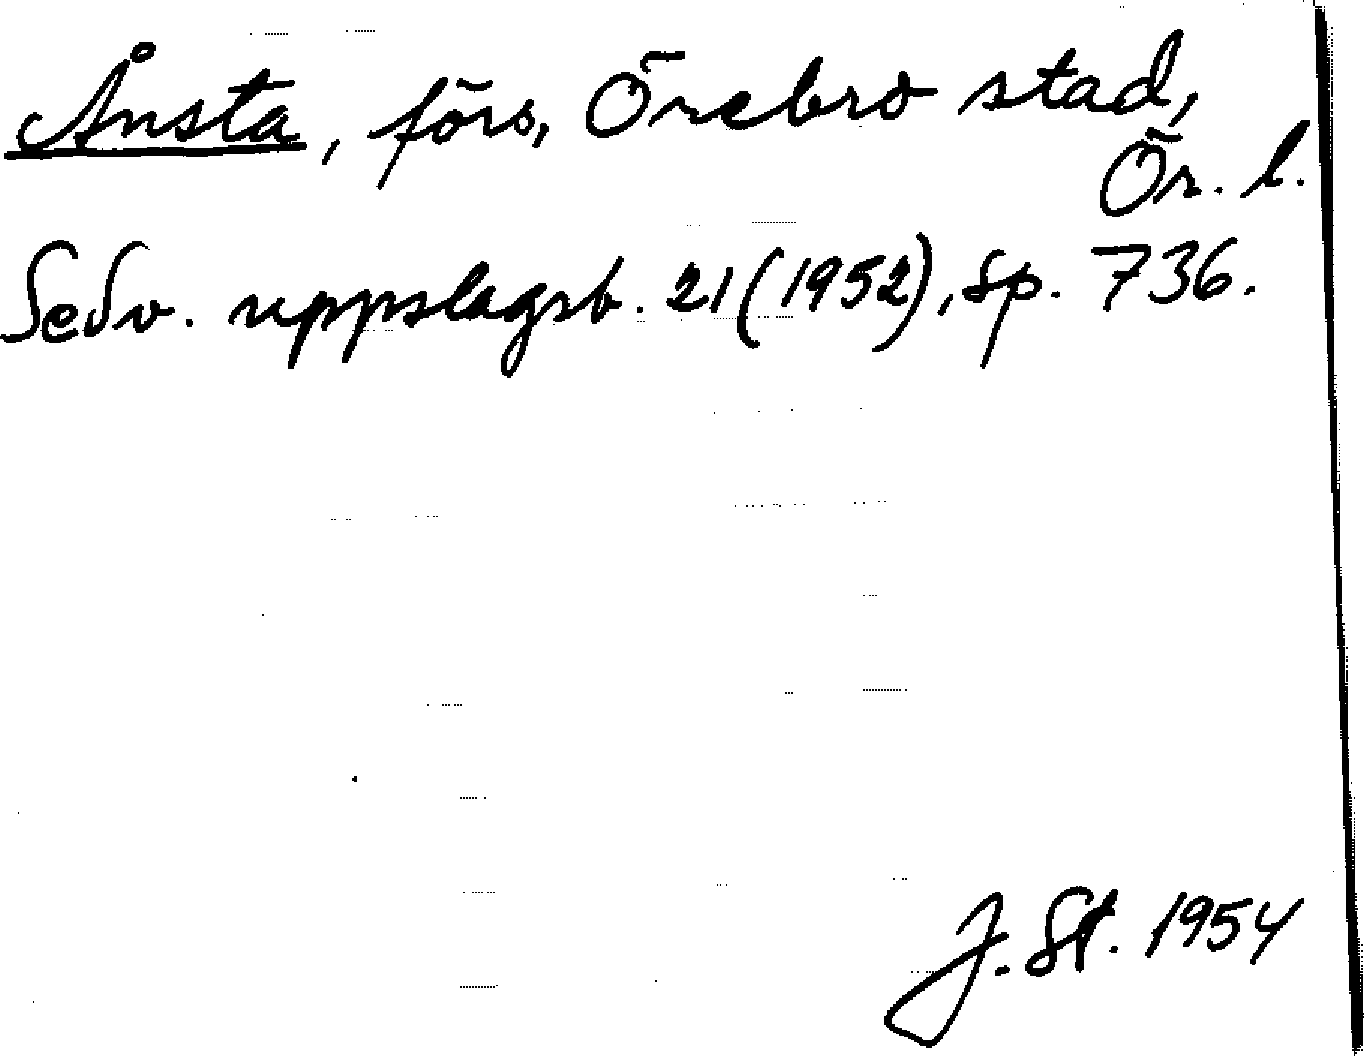 Ånsta, förs, Örebro stad,
Ör. l.
Sedv. uppslagsb. 21 (1952), sp. 736.
J. St. 1954